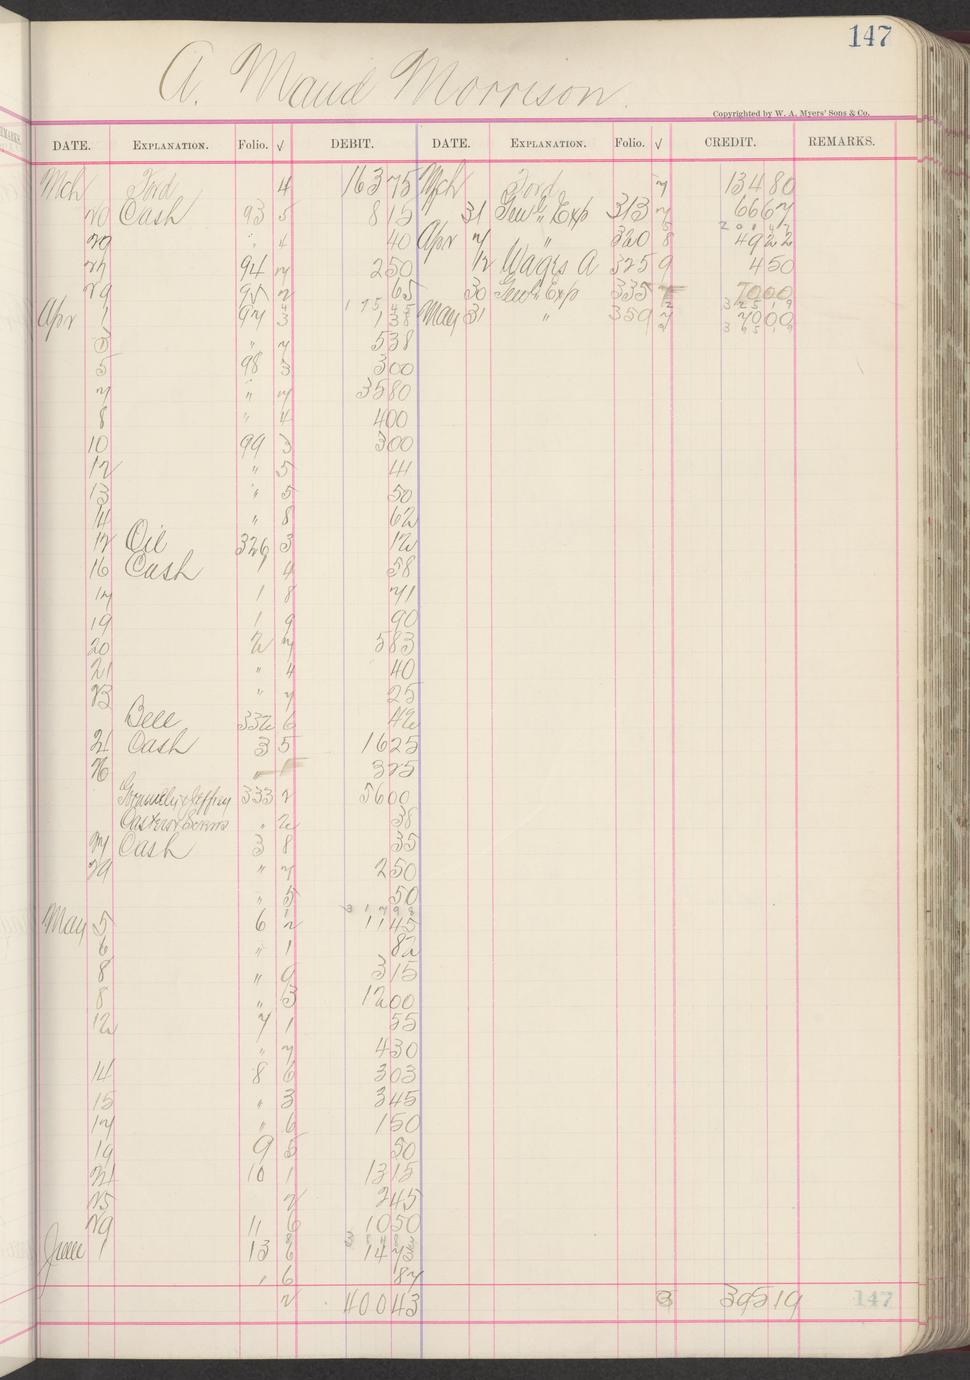 147
A. Maud Morrison.
Copyrighted by W. A. Myers' Sons & Co.
DATE. EXPLANATION. Folio. √ DEBIT. DATE. EXPLANATION. Folio. √ CREDIT. REMARKS.
Mch Ford 4 163 75 Mch Ford 7 134 80
20 Cash 93 5 8 15 31 Genl. Exp 313 7 66 67
20 " 4 40 Apr 7 " 320 8 49 22
94 7 2 50 12 Wages A 325 9 4 50
29 95 2 65 30 Genl. Exp 335 70 00
Apr 1 97 3 1 38 May 31 " 359 7 70 00
" 7 5 38
5 98 3 3 00
7 " 7 35 80
8 " 4 4 00
10 99 3 3 00
12 " 5 41
13 " 5 50
14 " 8 62
12 Oil 326 3 12
16 Cash 1 4 58
17 1 8 71
19 1 9 90
20 2 7 5 83
21 " 4 40
23 " 7 25
Bell 332 6 42
24 Cash 3 5 16 25
26 " 3 25
Gormully & Jeffrey 333 2 56 00
" 2 38
27 Cash 3 8 35
29 " 7 2 50
" 5 50
3 1 7 9 8
May 5 6 2 11 45
6 " 1 82
8 " 9 3 15
8 " 3 12 00
12 7 1 55
" 7 4 30
14 8 6 3 03
15 " 3 3 45
17 " 6 1 50
19 9 5 50
24 10 1 13 15
25 2 2 45
29 11 6 10 50
June 1 13 6 14 73
" 6 87
2 400 43 3 395 19 147